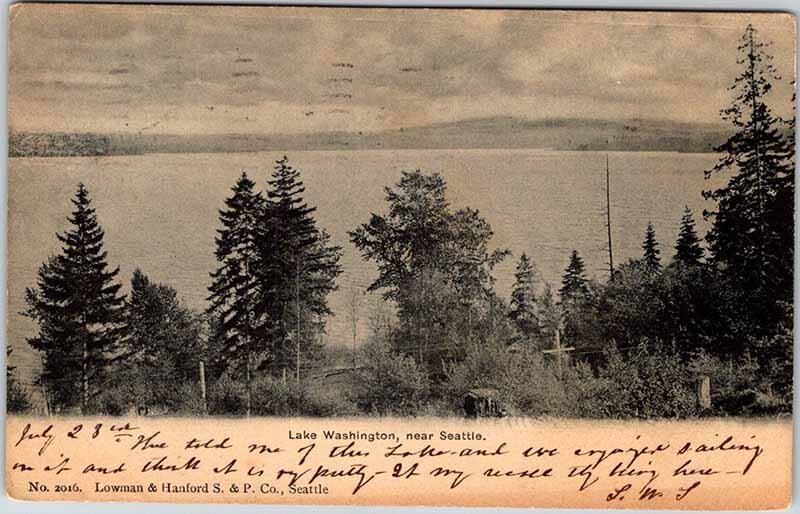 Lake Washington, near Seattle.
July 23rd told me of this Lake and we enjoyed sailing
on it and think it is very pretty - It my thing here -
No. 2016. Lowman & Hanford S. & P. Co., Seattle
S. W. S